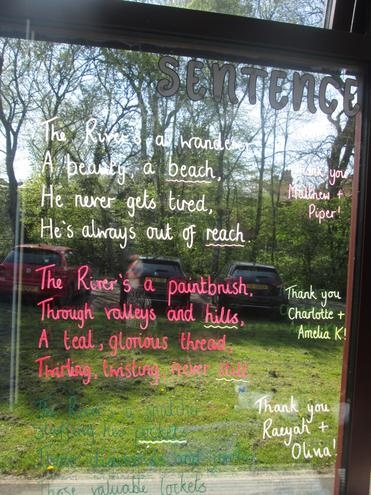 SENTENCE
The River's a wanderer,
A beauty, a beach,
He never gets tired,
He's always out of reach.
Thank you
Matthew +
Piper!
The River's a paintbrush,
Through valleys and hills,
A teal, glorious thread,
Twirling, twisting never still.
Thank you
Charlotte +
Amelia K!
The River's a snitcher
his pockets
Those valuable lockets
Thank you
Raeyah +
Olivia!